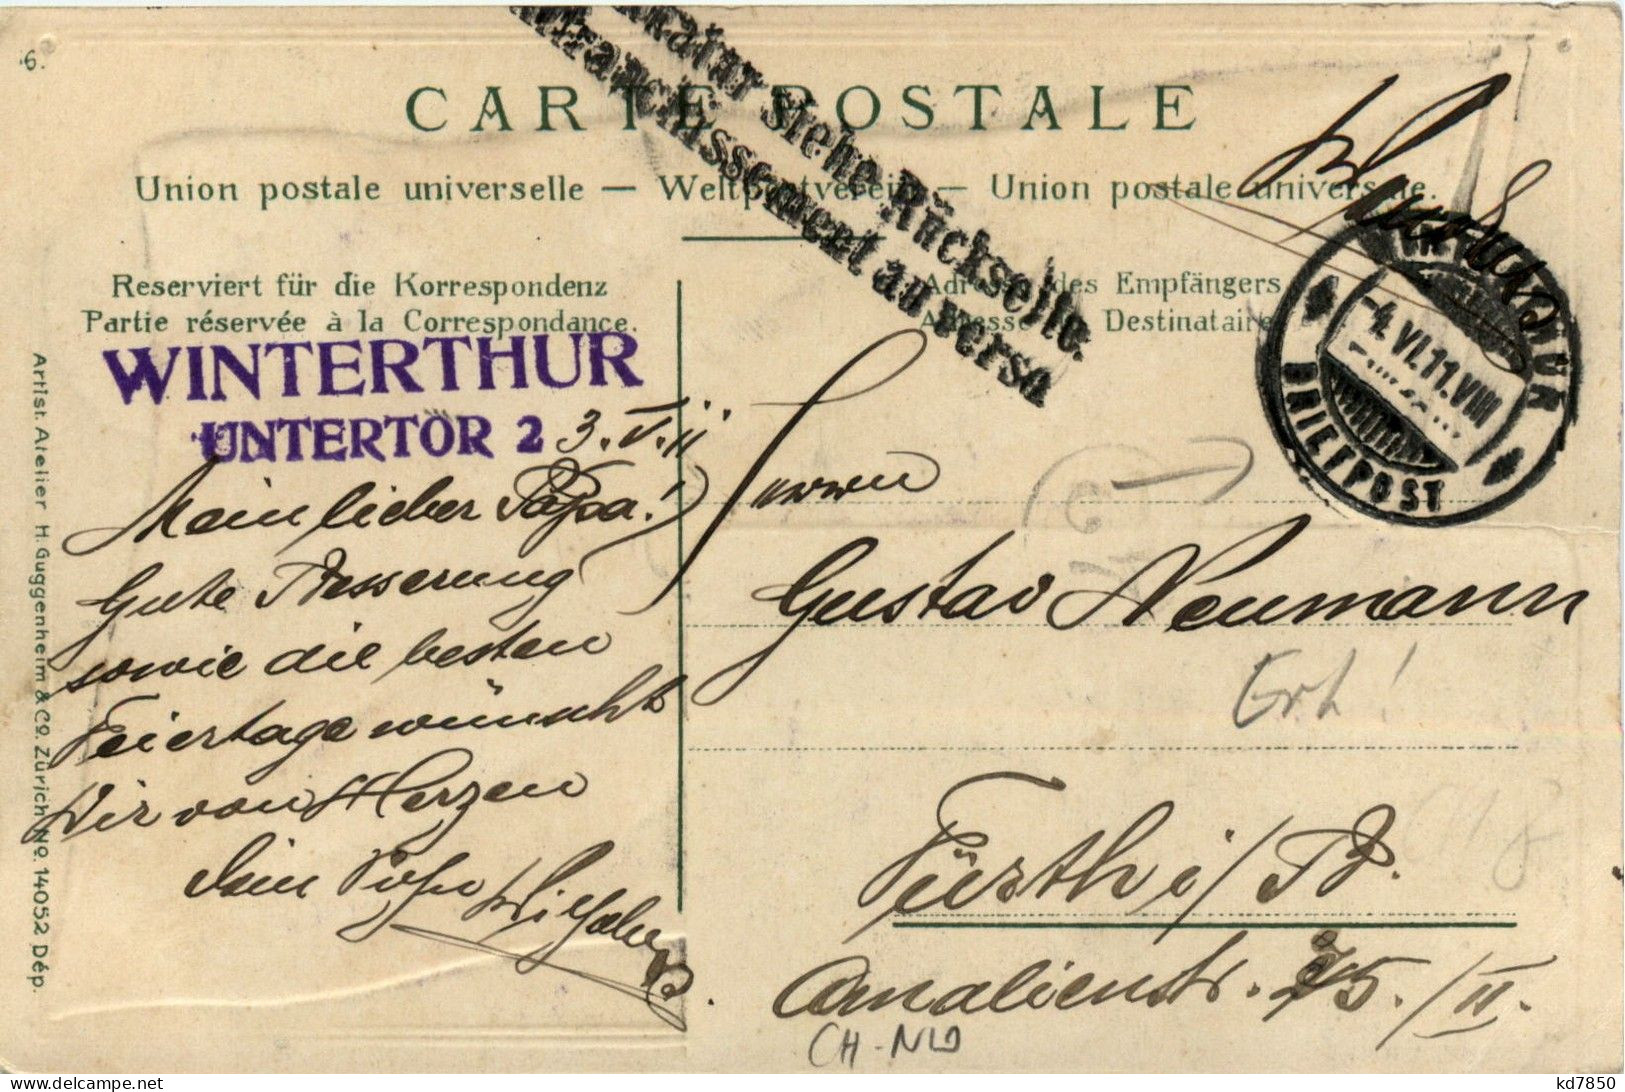 6.
CARTE POSTALE
Union postale universelle — Weltpostverein — Union postale universelle.
Frankatur siehe Rückseite.
Affranchissement au verso
Reserviert für die Korrespondenz
Partie réservée à la Correspondance.
Adresse des Empfängers
Adresse du Destinataire
WINTERTHUR
UNTERTÖR 2
3. V. 11
WINTERTHUR
-4.VI.11.VIII
BRIEFPOST
Mein lieber Papa!
Gute Besserung
sowie die besten
Feiertage wünscht
Dir von Herzen
Dein
Herrn
Gustav Neumann
Erl!
Fürth i/B.
Amalienstr. 75./II.
CH-NLD
Artist. Atelier H. Guggenheim & Co. Zürich No. 14052 Dép.
https://www.delcampe.net
kd7850